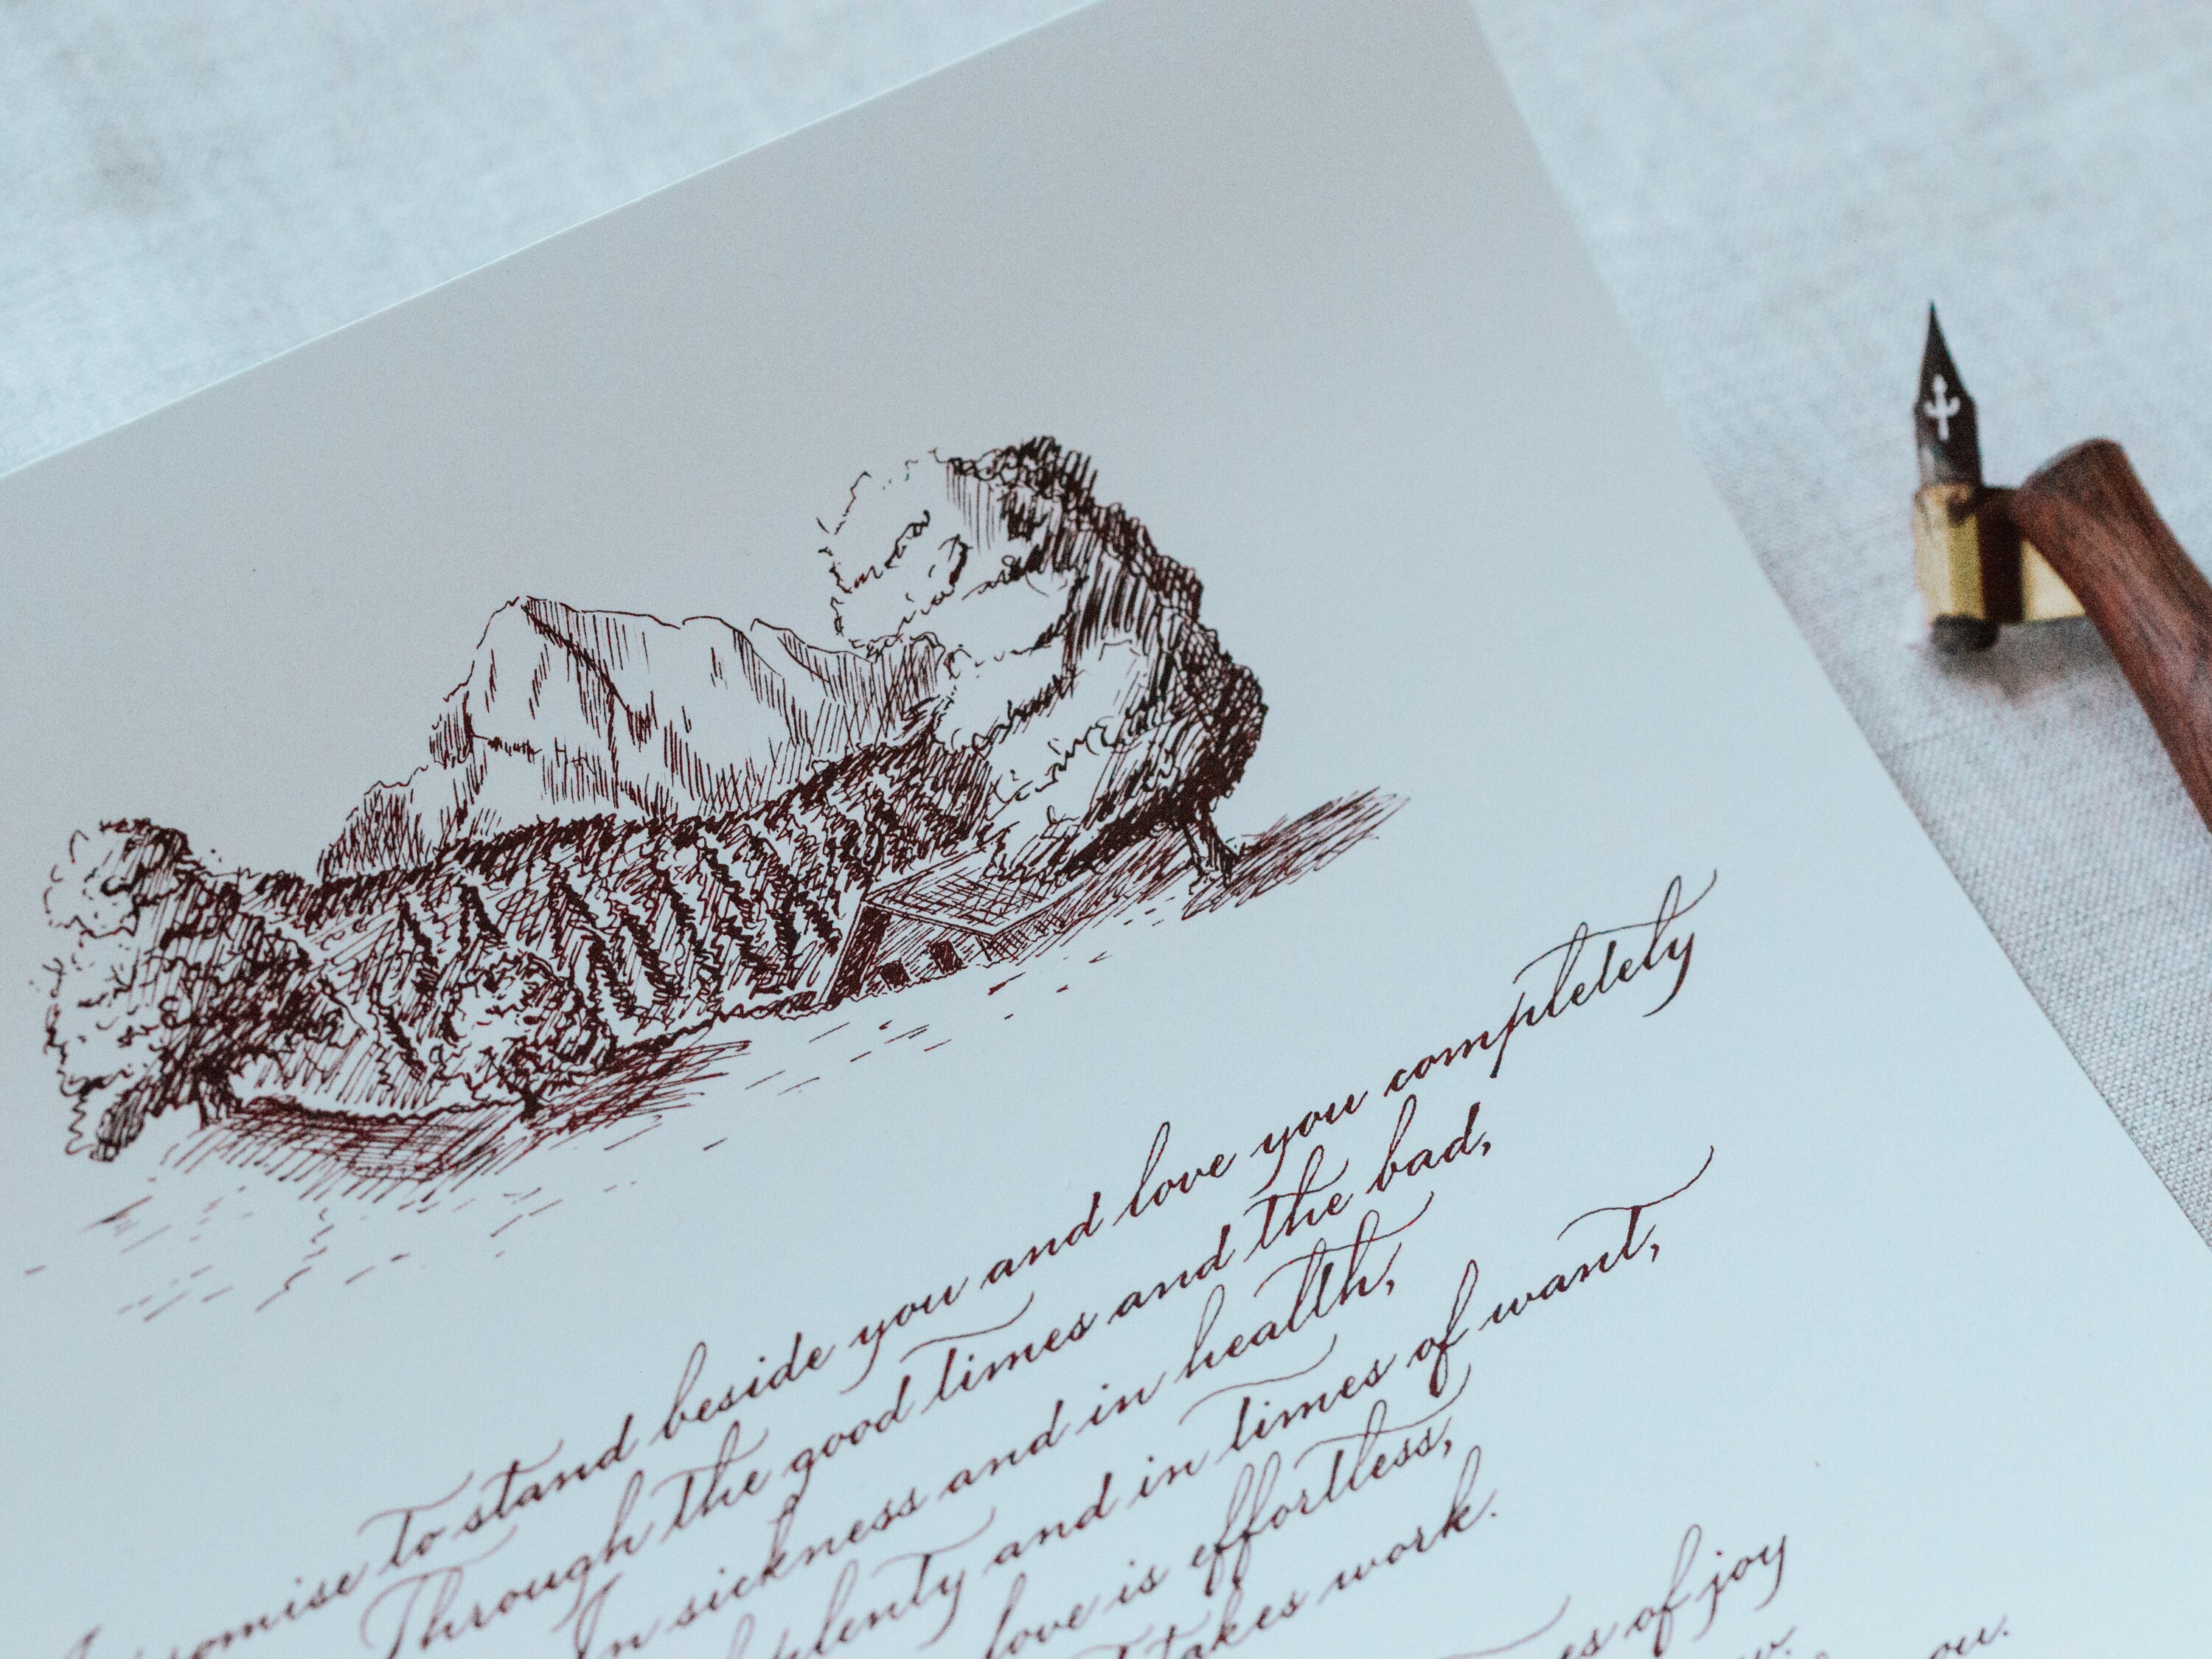 I promise to stand beside you and love you completely
Through the good times and the bad,
In sickness and in health,
plenty and in times of want,
love is effortless,
takes work.
of joy
you.